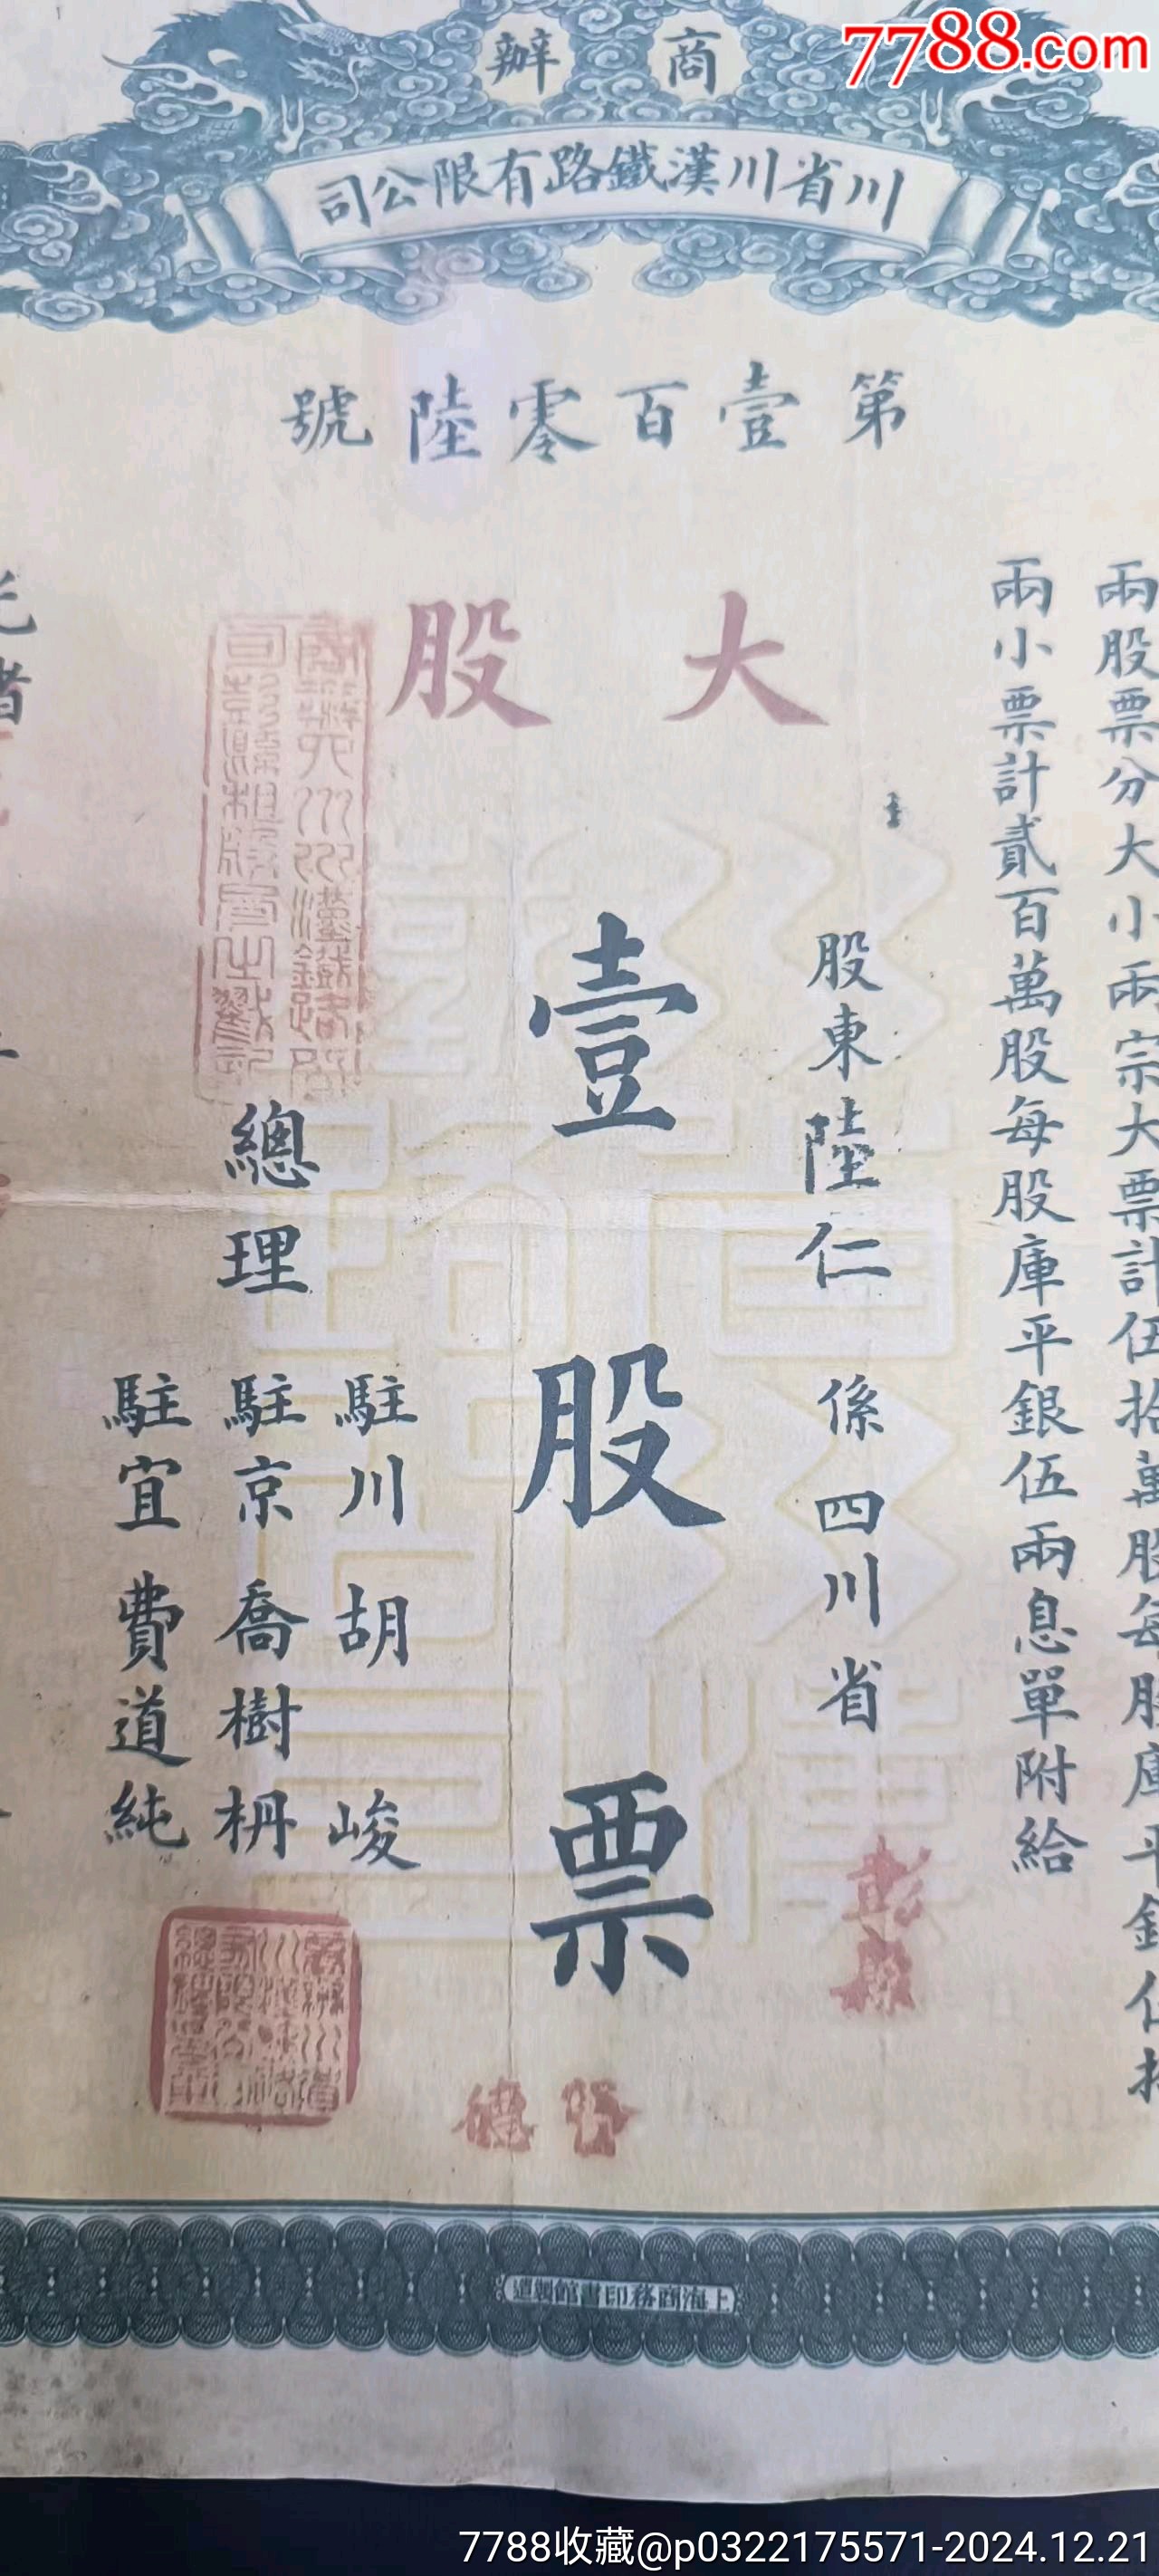 7788.com
商辦
川省川漢鐵路有限公司
第壹百零陸號
大股
兩股票分大小兩宗大票計伍拾萬股每股庫平銀伍拾
兩小票計貳百萬股每股庫平銀伍兩息單附給
股東陸仁 係四川省
彭縣
壹股票
總理
駐川胡峻
駐京喬樹枏
駐宜費道純
光緒
上海商務印書館製造
7788收藏@p0322175571-2024.12.21